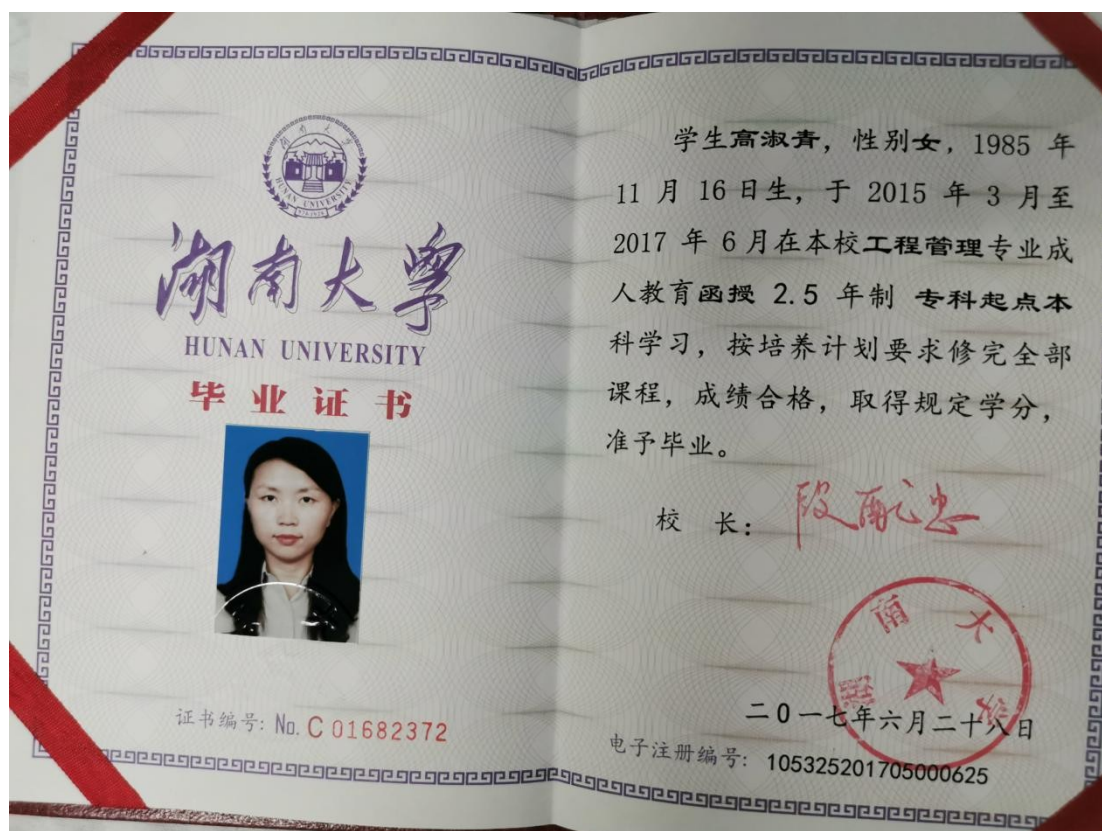 湖南大学
HUNAN UNIVERSITY
湖南大学
HUNAN UNIVERSITY
毕业证书
证书编号: No. C 01682372
学生高淑青，性别女，1985 年
11 月 16 日生，于 2015 年 3 月至
2017 年 6 月在本校工程管理专业成
人教育函授 2.5 年制 专科起点本
科学习，按培养计划要求修完全部
课程，成绩合格，取得规定学分，
准予毕业。
校 长:
湖南大学
二0一七年六月二十八日
电子注册编号: 105325201705000625